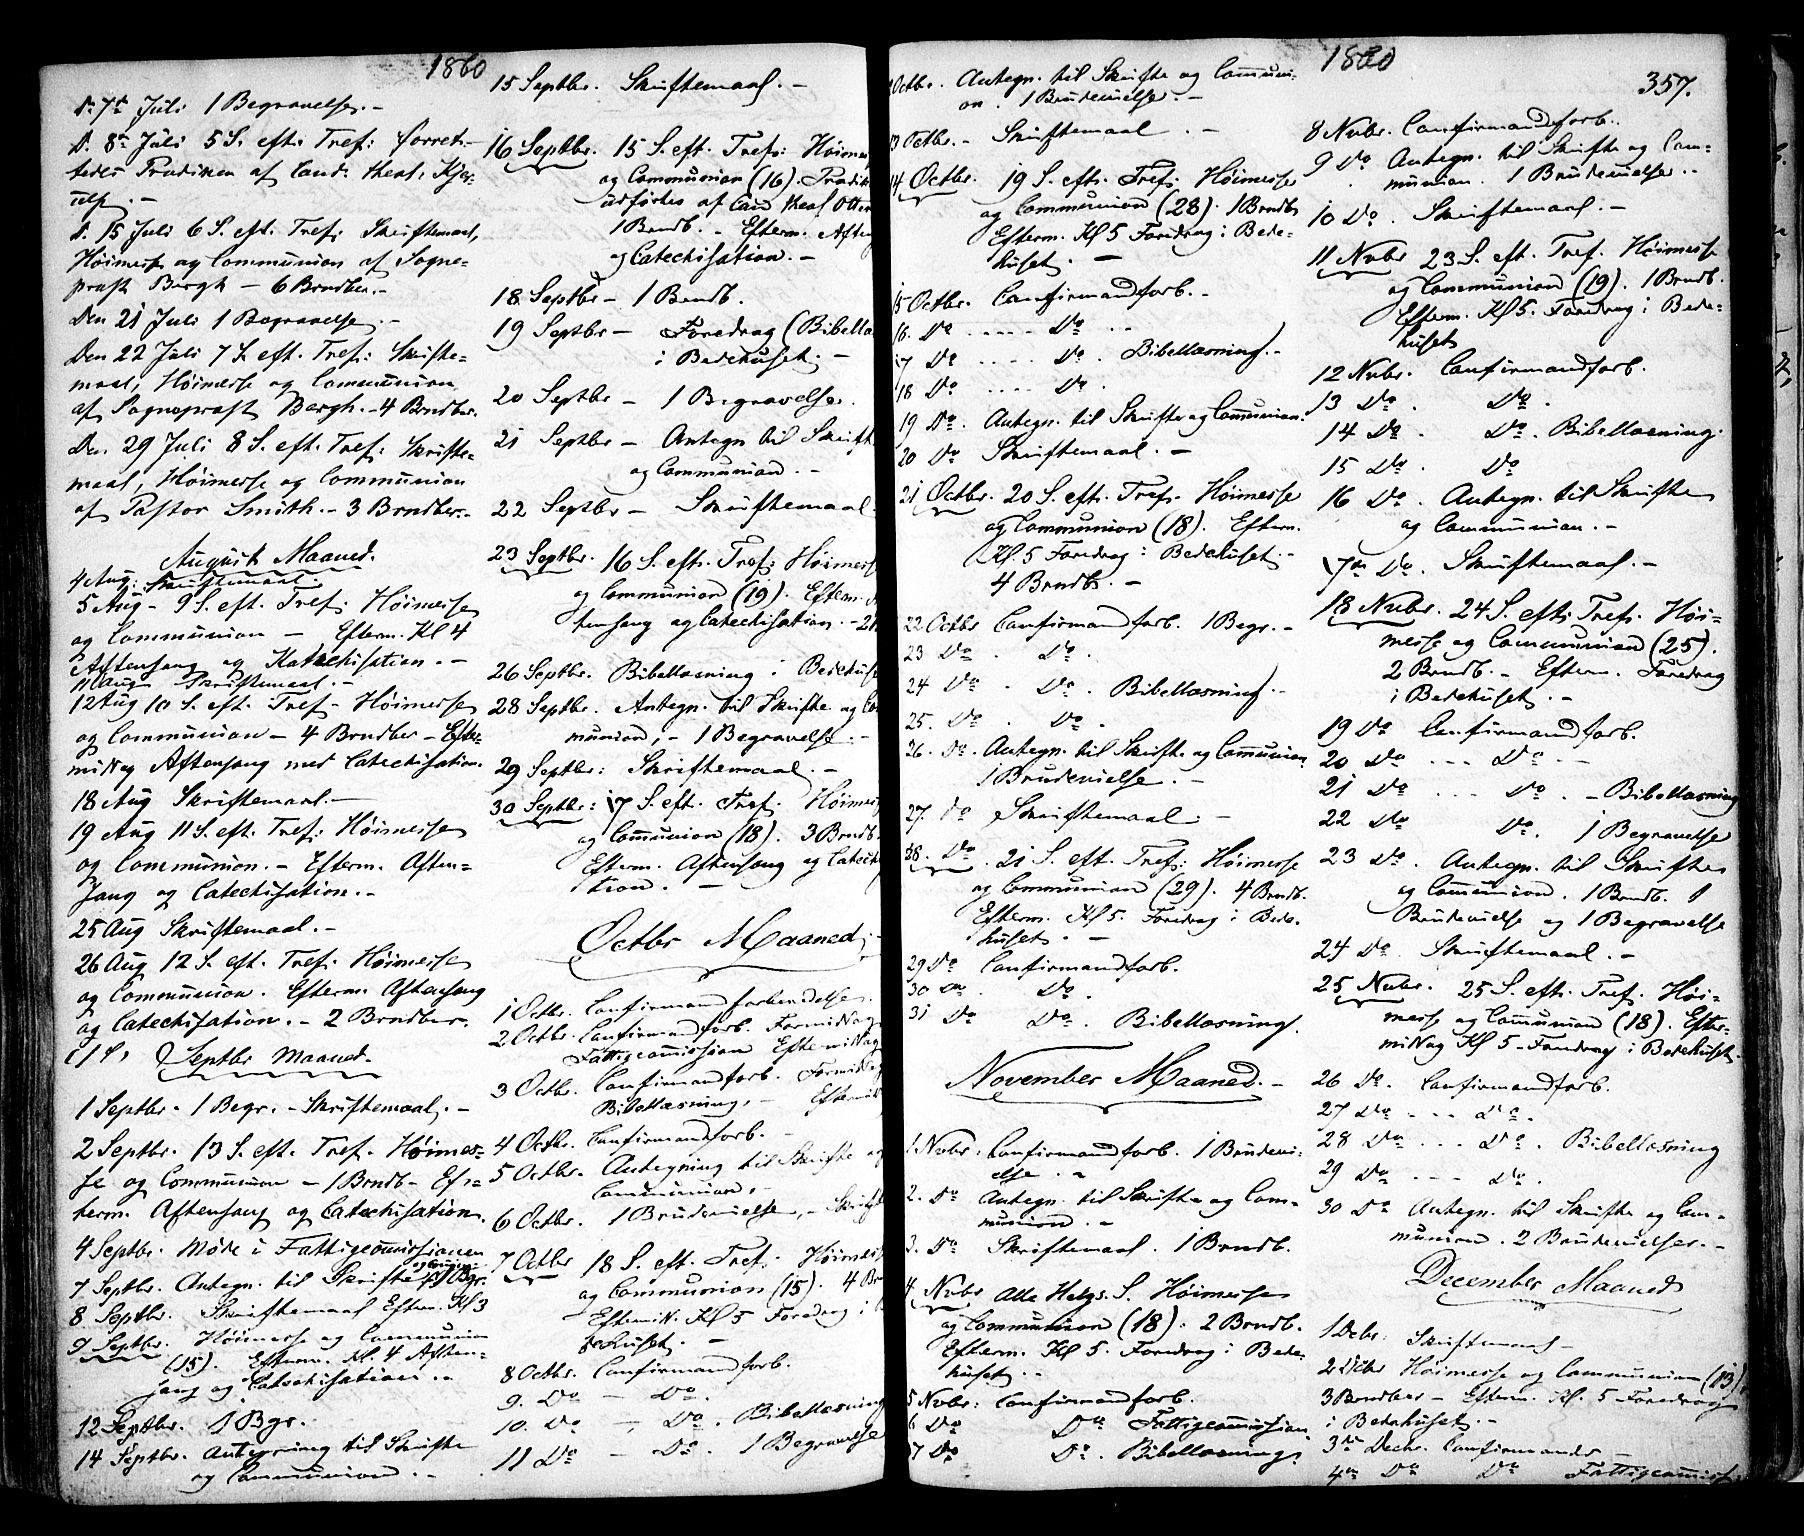 1860
d. 7de Juli 1 Begravelse. –
d. 8de Juli 5 S. eft. Tref: forret-
tedes Prædiken af Cand. theol. Kjer-
ulf. –
d. 15 Juli 6 S. eft. Tref: Skriftemaal,
Høimesse og Communion af Sogne-
præst Bergh – 6 Brndber. –
Den 21 Juli 1 Begravelse. –
Den 22 Juli 7 S. eft. Tref: Skrifte-
maal, Høimesse og Communion
af Sognepræst Bergh. – 4 Brndber.
Den 29 Juli 8 S. eft. Tref: Skrifte-
maal, Høimesse og Communion
af Pastor Smith. – 3 Brndber. –
August Maaned.
4 Aug: Skriftemaal.
5 Aug – 9 S. eft. Tref: Høimesse
og Communion – Efterm. Kl 4
Aftensang og Katechisation. –
11 Aug Skriftemaal. –
12 Aug 10 S. eft. Tref – Høimesse
og Communion – 4 Brndber – Efter-
middag Aftensang med Catechisation.
18 Aug Skriftemaal. –
19 Aug 11 S. eft. Tref: Høimesse
og Communion. – Efterm. Aften-
sang og Catechisation. –
25 Aug Skriftemaal. –
26 Aug 12 S. eft. Tref: Høimesse
og Communion. Efterm Aftensang
og Catechisation. – 2 Brndber.
Septbr Maaned.
1 Septbr. 1 Begr. – Skriftemaal. –
2 Septbr. 13 S. eft. Tref. Høimes-
se og Communion – 1 Brndb – Ef-
term. Aftensang og Catechisation.
4 Septbr. Møde i Fattigcommissionen
7 Septbr. Antegn. til Skrifte og Commun: 1 Bgr.
8 Septbr. Skriftemaal Efterm. Kl 3
9 Septbr. Høimesse og Communion
(15). Efterm. Kl. 4 Aften-
sang og Catechisation. –
12 Septbr. 1 Bgr.
14 Septbr. Antegning til Skrifte
og Communion. –
15 Septbr. Skriftemaal. –
16 Septbr. 15 S. eft. Tref: Høimes
og Communion (16). Prædik
udførtes af Cand theol Otter
1 Brndb. – Efterm. Aften
og Catechisation. –
18 Septbr – 1 Brndb.
19 Septbr – Foredrag (Bibellæ
i Bedehuset. –
20 Septbr – 1 Begravelse.
21 Septbr – Antegn til Skrift
og Communion. –
22 Septbr – Skriftemaal.
23 Septbr. 16 S. eft. Tref: Høimesse
og Communion (19). Efterm. A
tensang og Catechisation. –
26 Septbr. Bibellæsning i Bedehuse
28 Septbr. Antegn. til Skrifte og Co
munion, – 1 Begravelse. –
29 Septbr: Skriftemaal. –
30 Septbr: 17 S. eft. Tref. Høimess
og Communion (18). 3 Brndb.
Efterm. Aftensang og Catechi
tion. –
Octbr Maaned. –
1 Octbr. Confirmandforberedelse.
2 Octbr. Confirmandforb. Formiddag
Fattigcommission Eftermiddag
3 Octbr. Confirmandforb. Formiddag
Bibellæsning, – Eftermid
4 Octbr. Confirmandforb. –
5 Octbr. Antegning til Skrifte og
Communion, –
6 Octbr. 1 Brudevielse, – Skrift
7 Octbr 18 S. eft. Tref. Høimesse
og Communion (15). 4 Br
Eftermidd. Kl 5 Foredrag i B
dehuset. –
8 Octbr. Confirmandforb.
9. Do – Do.
10. Do – Do. Bibellæsning
11 Do – Do. 1 Begravelse
1860
357.
Octbr. Antegn. til Skrifte og Commun:
on. 1 Brudevielse. –
13 Octbr. – Skriftemaal. –
14 Octbr. 19 S. eft. Tref: Høimesse
og Communion (28). 1 Brndb.
Efterm. Kl 5 Foredrag i Bede-
huset. –
15 Octbr. Confirmandforb. –
16. Do .... Do ..
17 Do .... Do. Bibellæsning. –
18 Do .... Do.
19 Do. Antegn. til Skrifte og Communion.
20 Do Skriftemaal. –
21 Octbr. 20 S. eft. Tref. Høimesse
og Communion (18). Efterm.
Kl. 5 Foredrag i Bedehuset. –
4 Brndb. –
22 Octbr Confirmandforb. 1 Begr. –
23 Do. Do.
24 Do. Do. Bibellæsning. –
25. Do. Do.
26. Do. Antegn. til Skrifte og Communion
1 Brudevielse. –
27. Do Skriftemaal. –
28. Do. 21 S. eft. Tref: Høimesse
og Communion (29). 4 Brndb.
Efterm. Kl 5. Foredrag i Bede-
huset. –
29 Do Confirmandforb.
30 Do. Do.
31 Do Do. Bibellæsning.
November Maaned. –
1 Nvbr. Confirmandforb. 1 Brudevi-
else. –
2. Do Antegn. til Skrifte og Com-
munion. –
3. Do Skriftemaal. 1 Brndb.
4 Nvbr Alle Helgs. S. Høimesse
og Communion (18). 2 Brndb.
Efterm. Kl 5. Foredrag i Bede-
huset. –
5 Nvbr: Confirmandforb.
6 Do Do Fattigcommission
7 Do Do. Bibellæsning.
8 Nvbr. Confirmandforb.
9 Do Antegn. til Skrifte og Com-
munion. 1 Brudevielse. –
10 Do. Skriftemaal. –
11 Nvbr 23 S. eft. Tref. Høimesse
og Communion (19). 1 Brndb.
Efterm. Kl 5. Foredrag i Bede-
huset
12 Nvbr. Confirmandforb.
13 Do. Do.
14 Do. Do. Bibellæsning.
15 Do. Do
16 Do. Antegn. til Skrifte
og Communion. –
17de Do. Skriftemaal. –
18 Nvbr. 24 S. eft. Tref. Høi-
messe og Communion (25).
2 Brndb. – Efterm. Foredrag
i Bedehuset. –
19 Do Confirmandforb.
20 Do ... Do ..
21 Do ... Do. – Bibellæsning
22 Do Do. 1 Begravelse
23 Do. Antegn. til Skrifte
og Communion. 1 Brndb. 1
Brudevielse og 1 Begravelse
24 Do. Skriftemaal. –
25 Nvbr. 25 S. eft. Tref. Høi-
messe og Communion (18). Efter-
middag Kl 5 – Foredrag i Bedehuset –
26 Do. Confirmandforb.
27 Do ... Do.
28 Do ... Do. Bibellæsning
29 Do ... Do.
30 Do Antegn. til Skrifte og Com-
munion. 2 Brudevielser. –
December Maaned
1 Dcbr: Skriftemaal –
2 Dcbr Høimesse og Communion (13).
3 Brndber – Efterm. Kl. 5 Foredrag
i Bedehuset. –
3die Decbr. Confirmander –
4de Do Do Fattigcommiss